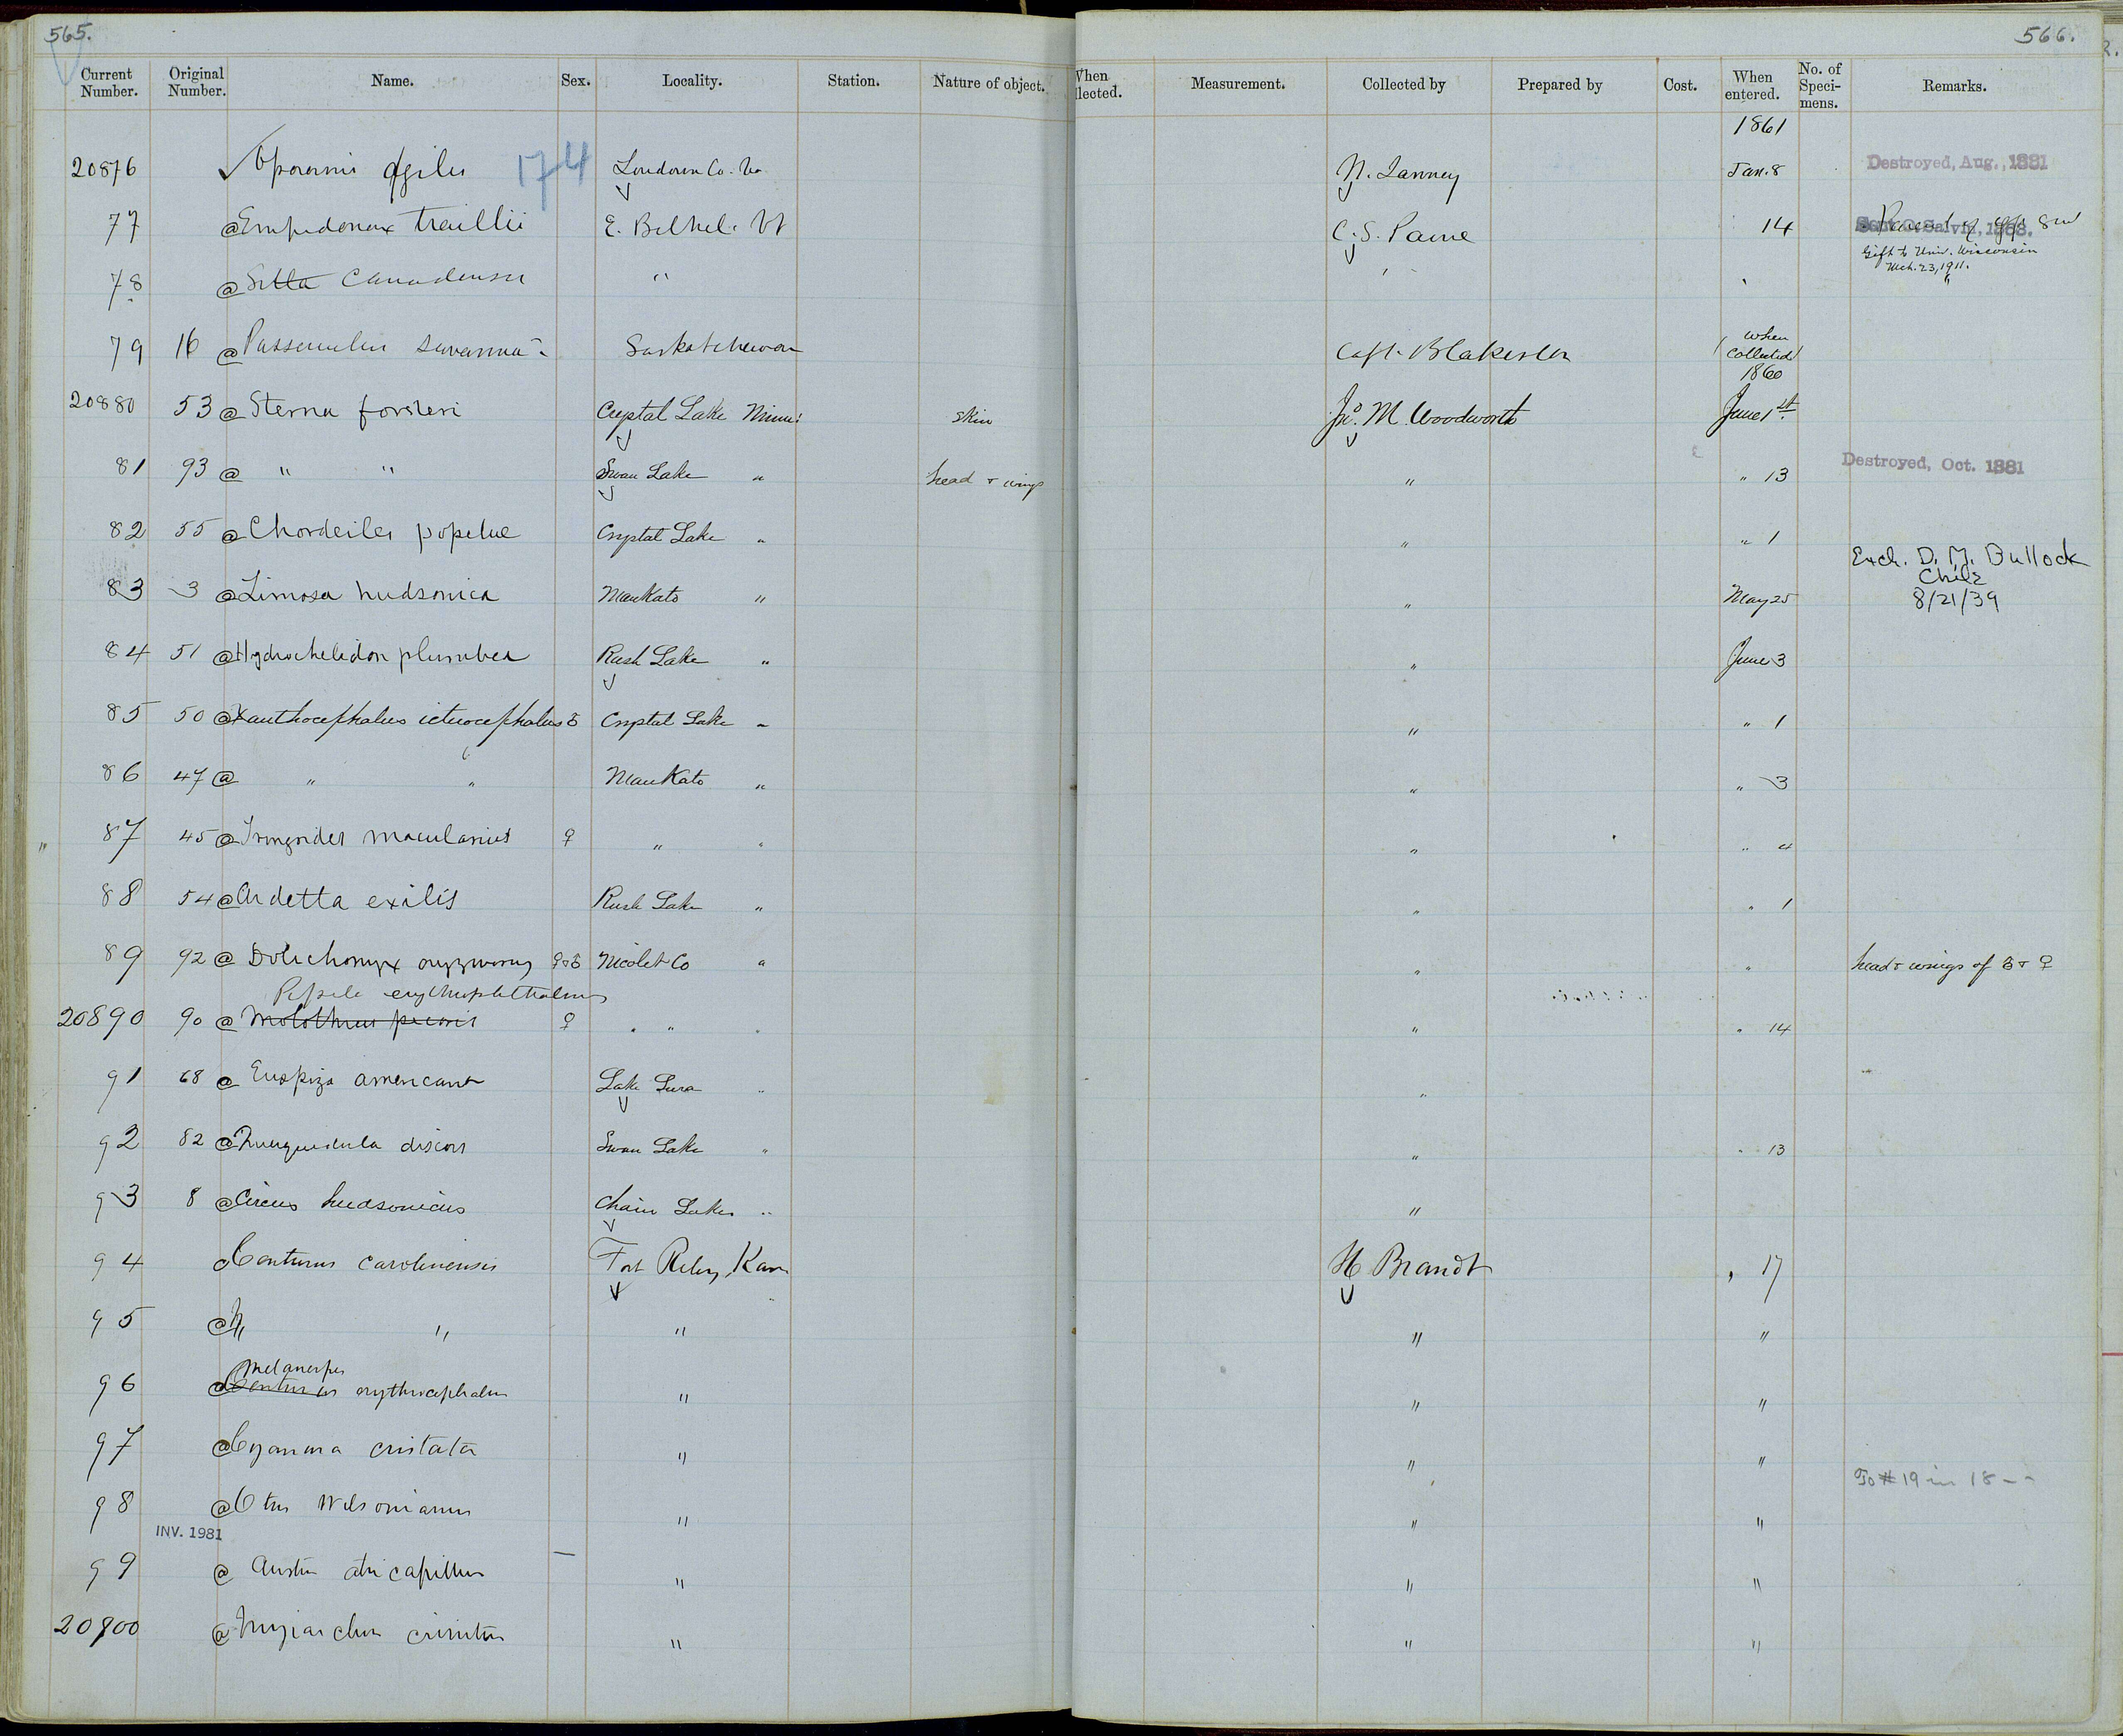 565.
566.
Current Number. Original Number. Name. Sex. Locality. Station. Nature of object. When llected. Measurement. Collected by Prepared by Cost. When entered. No. of Speci- mens. Remarks.
1861
20876 ✓ Oporornis agilis 174 Loudoun Co. Va N. Janney Jan. 8 Destroyed, Aug., 1881
77 @ Empidonax traillii E. Bethel. Vt C. S. Paine 14 Parent of egg
Sent O. Salvin, 1888.
Gift to Univ. Wisconsin
Mch. 23, 1911.
78 @ Sitta Canadensis " " "
79 16 @ Passerculus savanna Saskatchewan Capt. Blakiston (when Collected)
1860
20880 53 @ Sterna forsteri Crystal Lake Minn: skin Jno. M. Woodworth June 1st.
81 93 @ " " Swan Lake " head & wings " " 13 Destroyed, Oct. 1881
82 55 @ Chordeiles popetue Crystal Lake " " " 1
83 3 @ Limosa hudsonica Mankato " " May 25 Exch. D. M. Bullock
Chile
8/21/39
84 51 @ Hydrochelidon plumbea Rush Lake " " June 3
85 50 @ Xanthocephalus icterocephalus ♂ Crystal Lake " " " 1
86 47 @ " " Mankato " " " 3
" 87 45 @ Tringoides macularius ♀ " " " " 4
88 54 @ Ardetta exilis Rush Lake " " " 1
89 92 @ Dolichonyx oryzivorus ♀&♂ Nicolet Co " " " head & wings of ♂ & ♀
Pipilo erythrophthalmus
20890 90 @ Molothrus pecoris ♀ " " " " " 14
91 68 @ Euspiza americana Lake Sura " "
92 82 @ Querquedula discors Swan Lake " " " 13
93 8 @ Circus hudsonicus Chain Lakes " "
94 @ Centurus carolinensis Fort Riley, Kan H Brandt " 17
95 @ " " " " "
Melanerpes
96 @ Centurus erythrocephalus " " "
97 @ Cyanura cristata " " "
To # 19 in 18 - -
98 @ Otus Wilsonianus " " "
INV. 1981
99 @ Astur atricapillus — " " "
20900 @ Myiarchus crinitus " " "